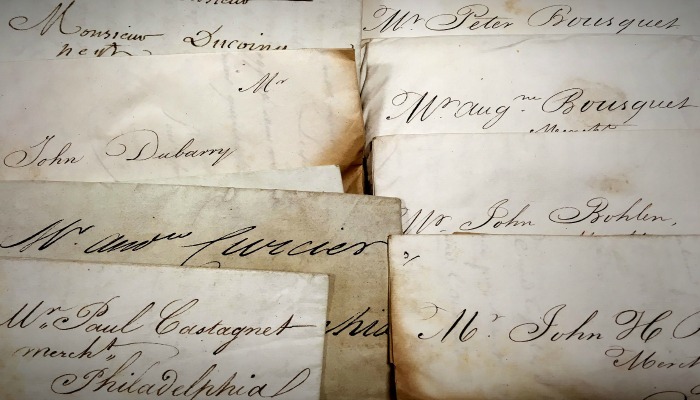 Monsieur Ducoing
Mr
John Dubarry
Mr. andw Curcier
Mr. Paul Castagnet
mercht
Philadelphia
Mr Peter Bousquet
Mr augne Bousquet
Mercht
Mr. John Bohlen,
Mr. John H